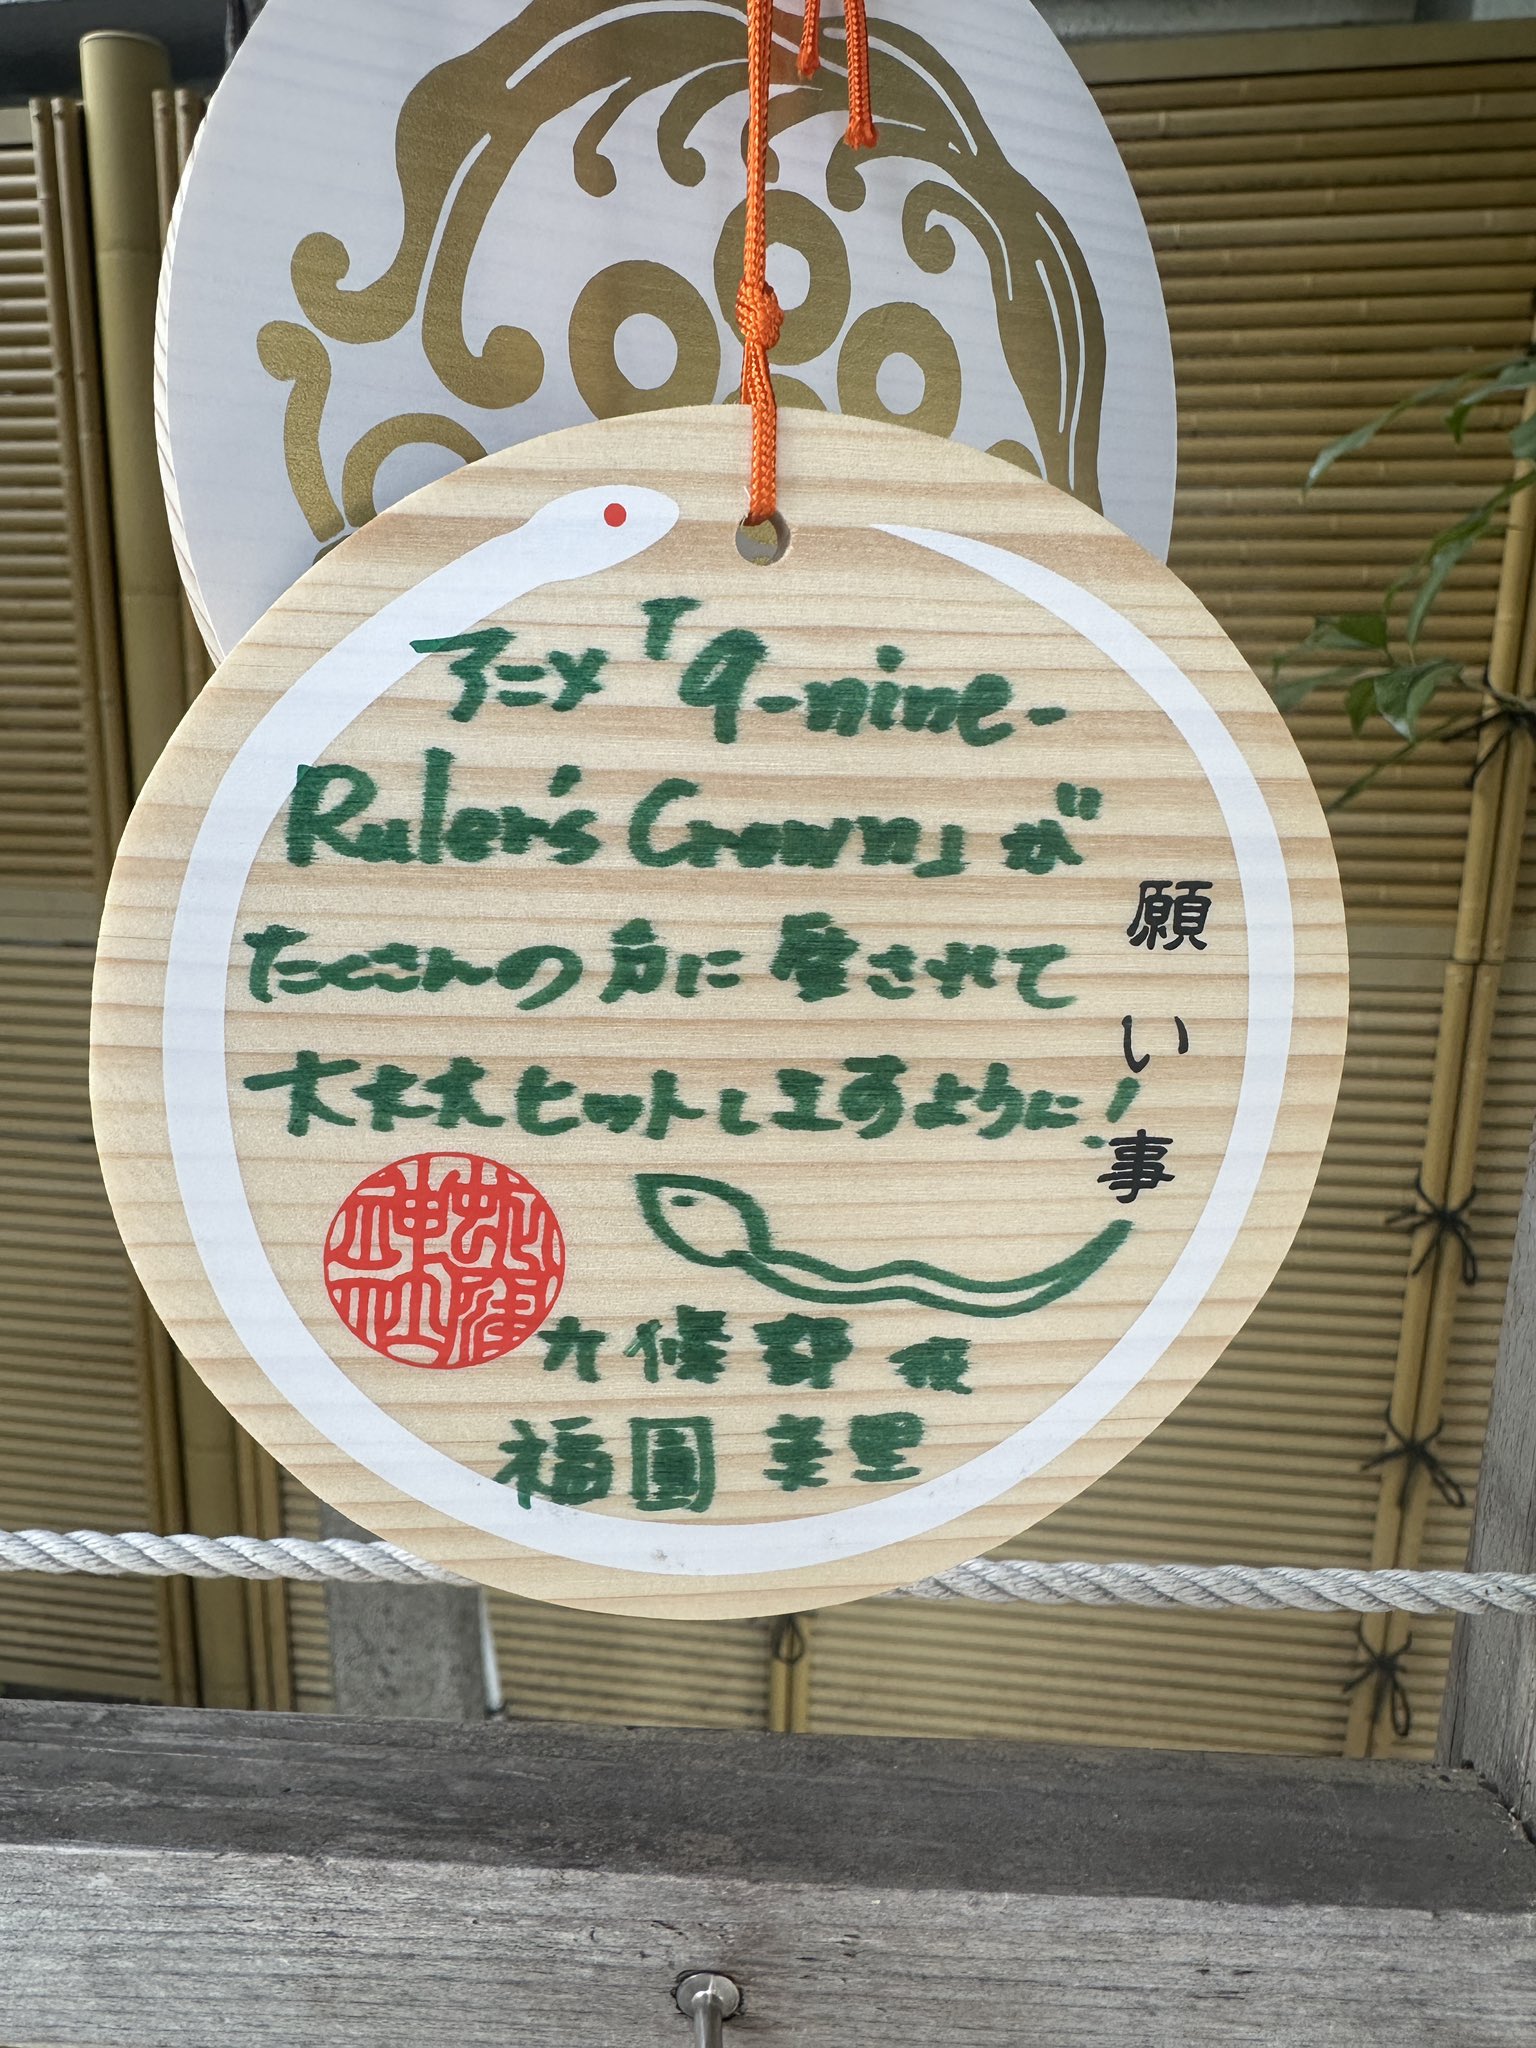 アニメ「9-nine-
Ruler's Crown」が
たくさんの方に愛されて
大大大ヒットしますように!
九條都役
福圓美里
願い事
蛇窪神社